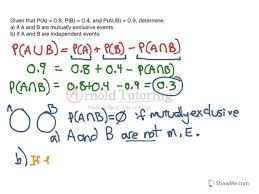 Given that P(A) = 0.8, P(B) = 0.4, and P(A∪B) = 0.9, determine:
a) if A and B are mutually exclusive events
b) if A and B are independent events
P(A∪B) = P(A) + P(B) - P(A∩B)
0.9 = 0.8 + 0.4 - P(A∩B)
P(A∩B) = 0.8+0.4 - 0.9 = 0.3
Arnold Tutoring
A B P(A∩B) = ∅ if mutually exclusive
a) A and B are not m. E.
b) If
ShowMe.com